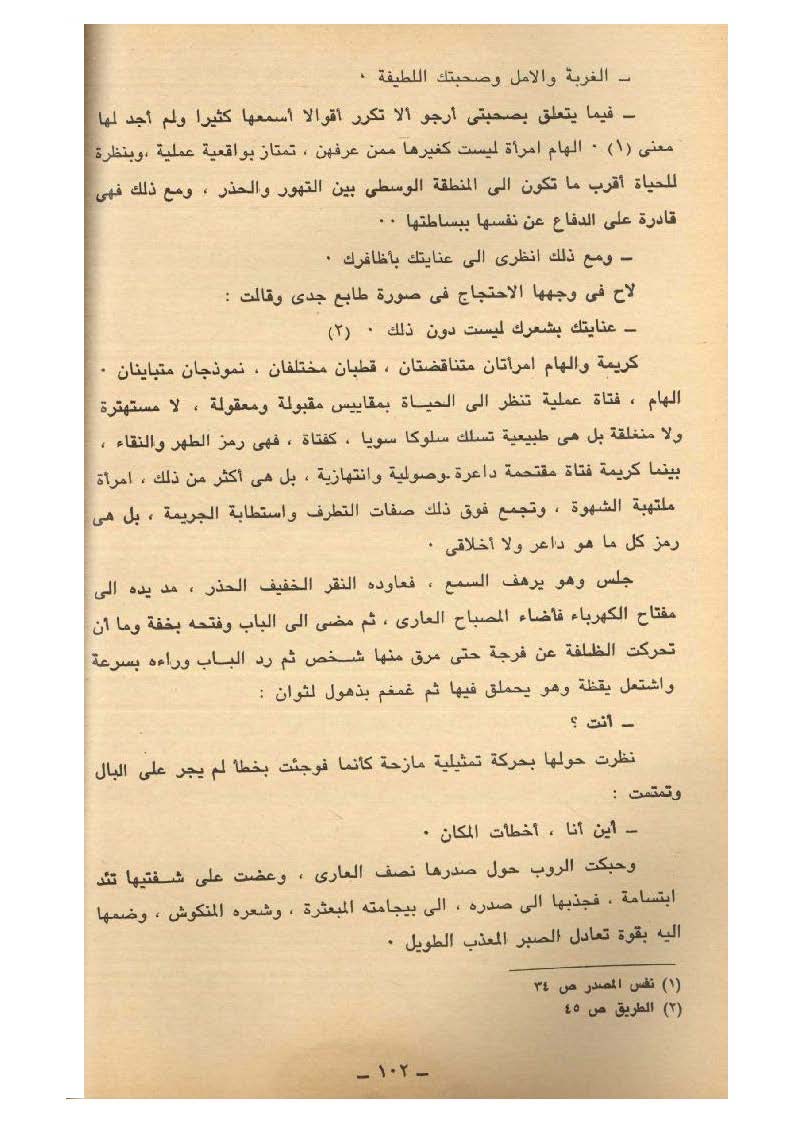 ــ الغربة والامل وصحبتك اللطيفة ٠
ــ فيما يتعلق بصحبتى أرجو ألا تكرر أقوالا أسمعها كثيرا ولم أجد لها
معنى (١) ٠ الهام امرأة ليست كغيرها ممن عرفهن ، تمتاز بواقعية عملية ،وبنظرة
للحياة أقرب ما تكون الى المنطقة الوسطى بين التهور والحذر ، ومع ذلك فهى
قادرة على الدفاع عن نفسها ببساطتها ٠٠
ــ ومع ذلك انظرى الى عنايتك بأظافرك ٠
لاح فى وجهها الاحتجاج فى صورة طابع جدى وقالت :
ــ عنايتك بشعرك ليست دون ذلك ٠ (٢)
كريمة والهام امرأتان متناقضتان ، قطبان مختلفان ، نموذجان متباينان ٠
الهام ، فتاة عملية تنظر الى الحيــاة بمقاييس مقبولة ومعقولة ، لا مستهترة
ولا منغلقة بل هى طبيعية تسلك سلوكا سويا ، كفتاة ، فهى رمز الطهر والنقاء ،
بينما كريمة فتاة مقتحمة داعرة وصولية وانتهازية ، بل هى أكثر من ذلك ، امرأة
ملتهبة الشهوة ، وتجمع فوق ذلك صفات التطرف واستطابة الجريمة ، بل هى
رمز كل ما هو داعر ولا أخلاقى ٠
جلس وهو يرهف السمع ، فعاوده النقر الخفيف الحذر ، مد يده الى
مفتاح الكهرباء فأضاء المصباح العارى ، ثم مضى الى الباب وفتحه بخفة وما أن
تحركت الظلفة عن فرجة حتى مرق منها شــخص ثم رد البــاب وراءه بسرعة
واشتعل يقظة وهو يحملق فيها ثم غمغم بذهول لثوان :
ــ أنت ؟
نظرت حولها بحركة تمثيلية مازحة كأنما فوجئت بخطأ لم يجر على البال
وتمتمت :
ــ أين أنا ، أخطأت المكان ٠
وحبكت الروب حول صدرها نصف العارى ، وعضت على شــفتيها تئد
ابتسامة ، فجذبها الى صدره ، الى بيجامته المبعثرة ، وشعره المنكوش ، وضمها
اليه بقوة تعادل الصبر المعذب الطويل ٠
(١) نفس المصدر ص ٣٤
(٢) الطريق ص ٤٥
ــ ١٠٢ ــ